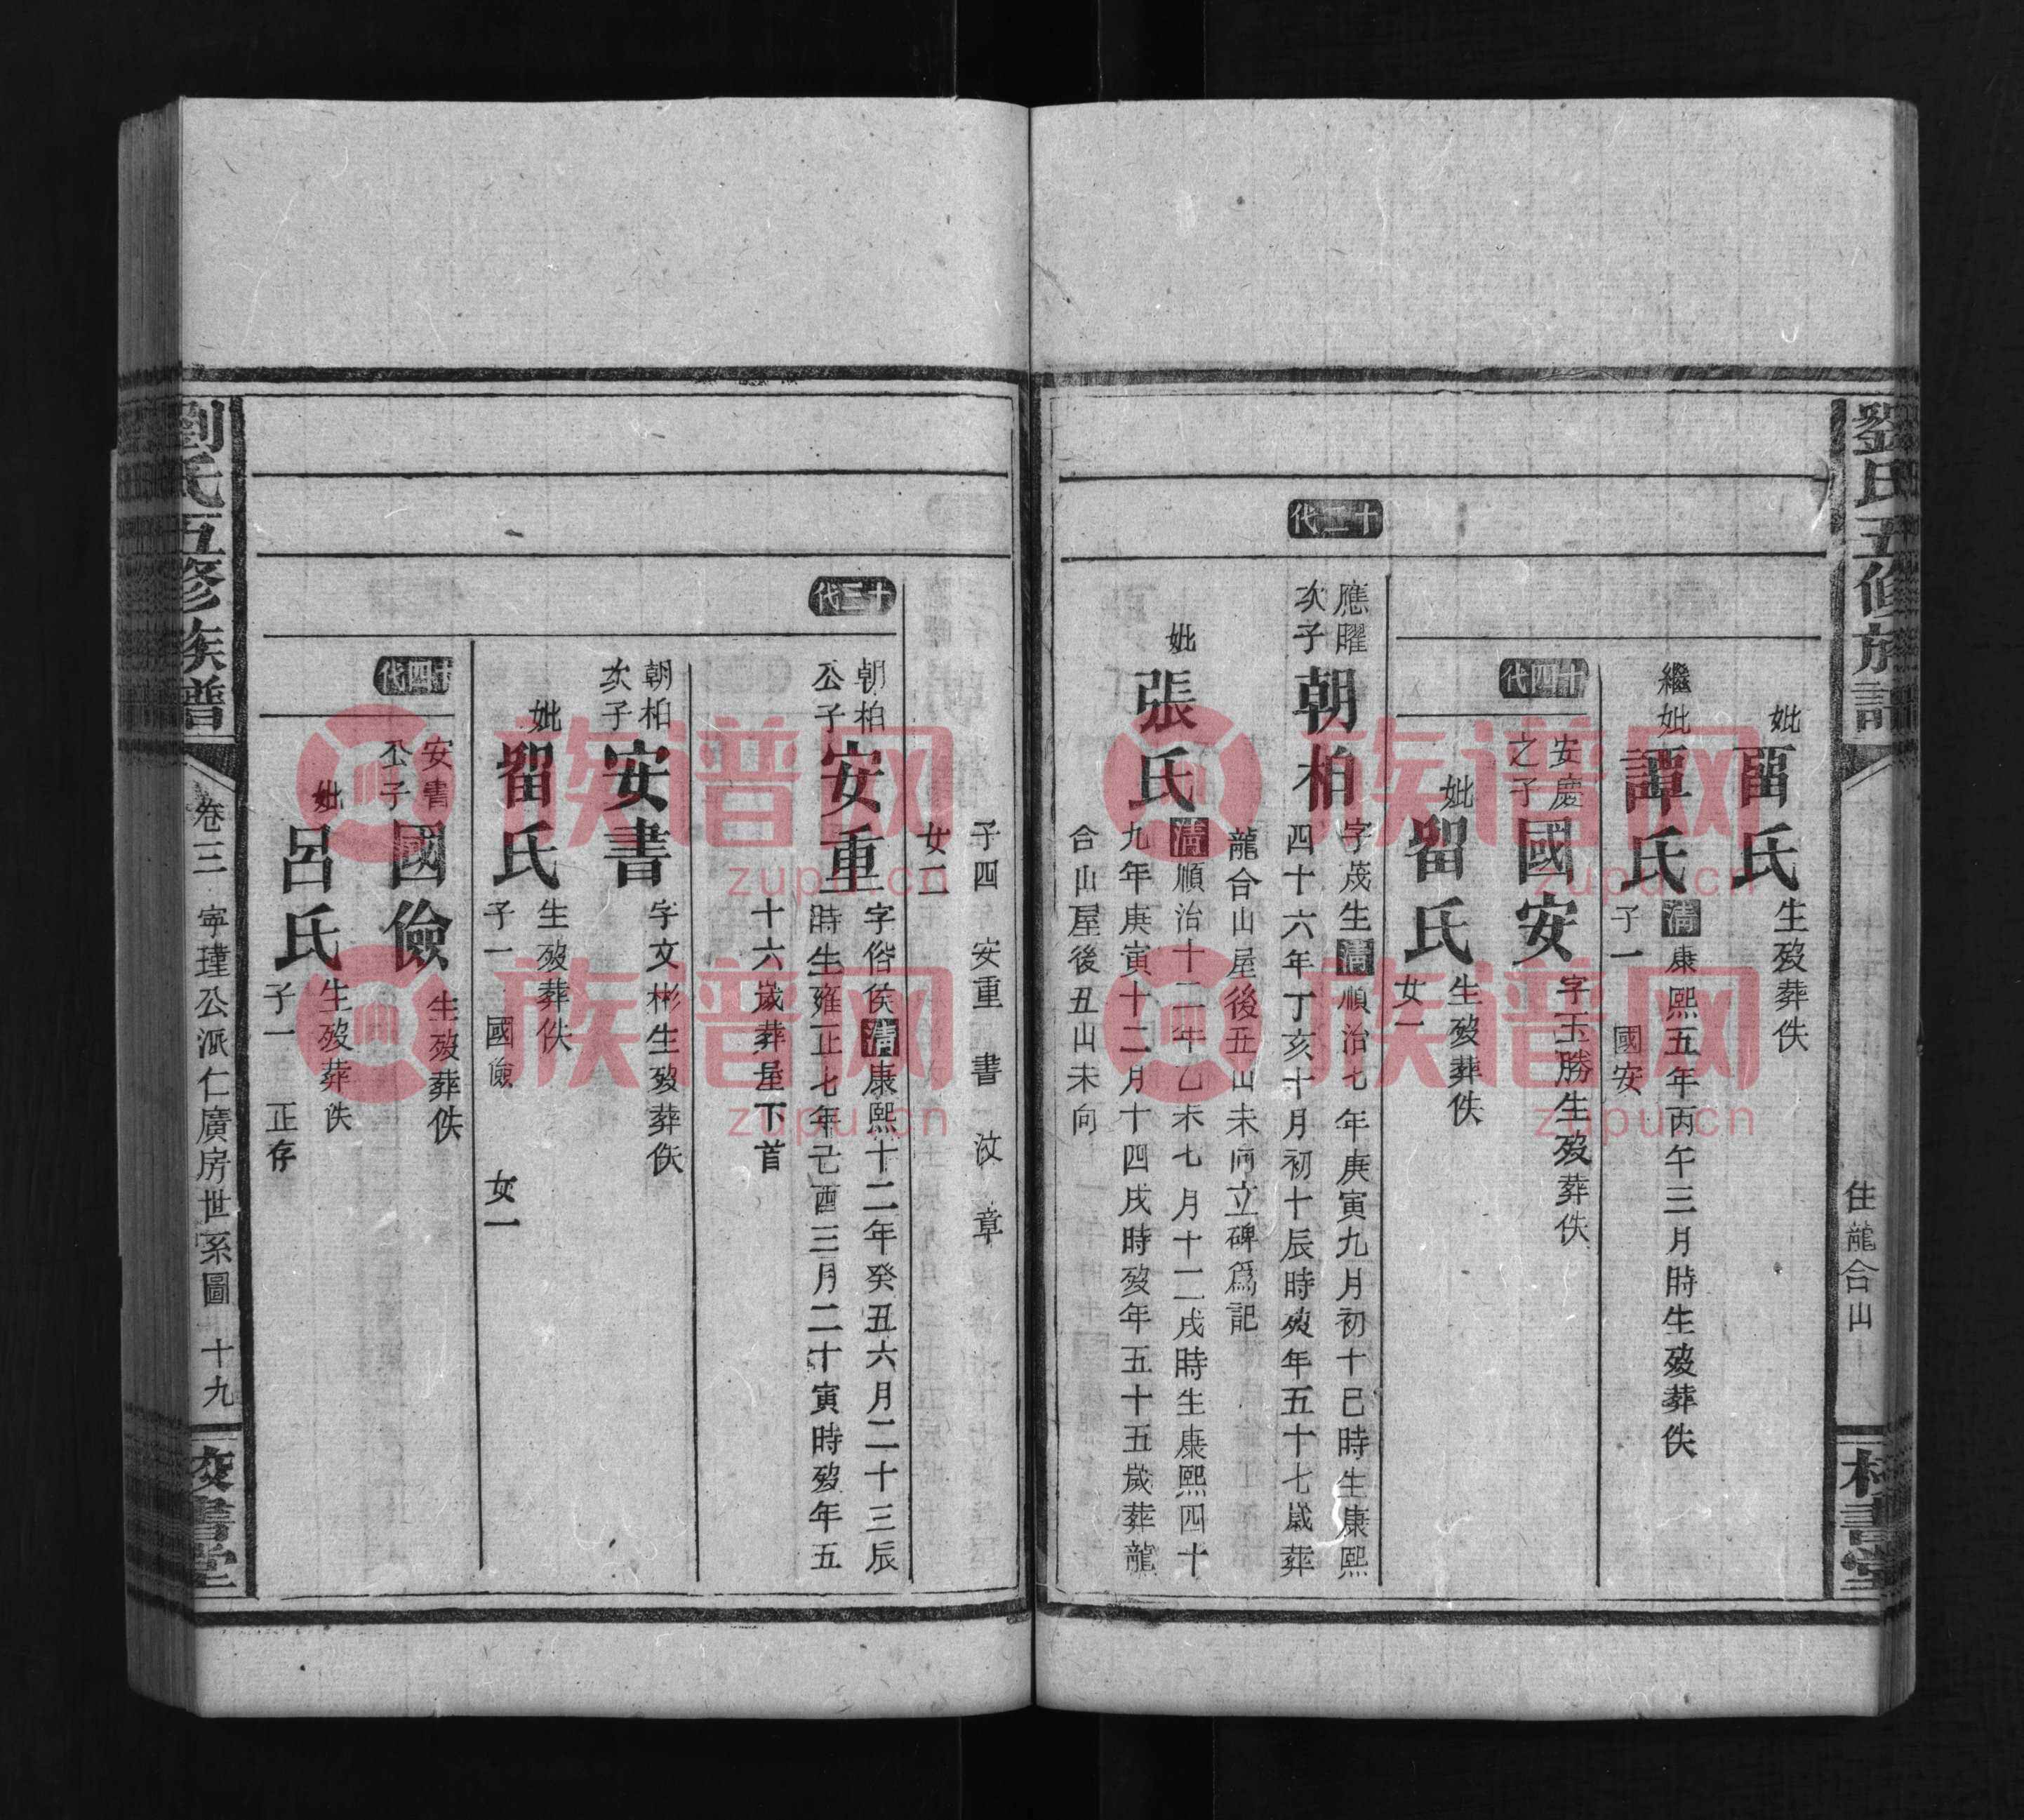 劉氏五修族譜
住龍合山
校書堂
妣
留氏
生歿葬佚
繼妣
譚氏
清康熙五年丙午三月時生歿葬佚
子一 國安
十四代
安慶
之子
國安
字玉勝生歿葬佚
妣
留氏
生歿葬佚
女一
十二代
應曜
次子
朝柏
字茂生清順治七年庚寅九月初十巳時生康熙
四十六年丁亥十月初十辰時歿年五十七歲葬
龍合山屋後丑山未向立碑為記
妣
張氏
清順治十二年乙未七月十一戌時生康熙四十
九年庚寅十二月十四戌時歿年五十五歲葬龍
合山屋後丑山未向
子四 安重 書 汶 章
女二
十三代
朝柏
公子
安重
字俗侯清康熙十二年癸丑六月二十三辰
時生雍正七年己酉三月二十寅時歿年五
十六歲葬屋下首
朝柏
次子
安書
字文彬生歿葬佚
妣
留氏
生歿葬佚
子一 國儉 女一
十四代
安書
公子
國儉
生歿葬佚
妣
呂氏
生歿葬佚
子一 正存
劉氏五修族譜
卷三 寧瑾公派仁廣房世系圖 十九
校書堂
族谱网
zupu.cn
族谱网
zupu.cn
族谱网
zupu.cn
族谱网
zupu.cn